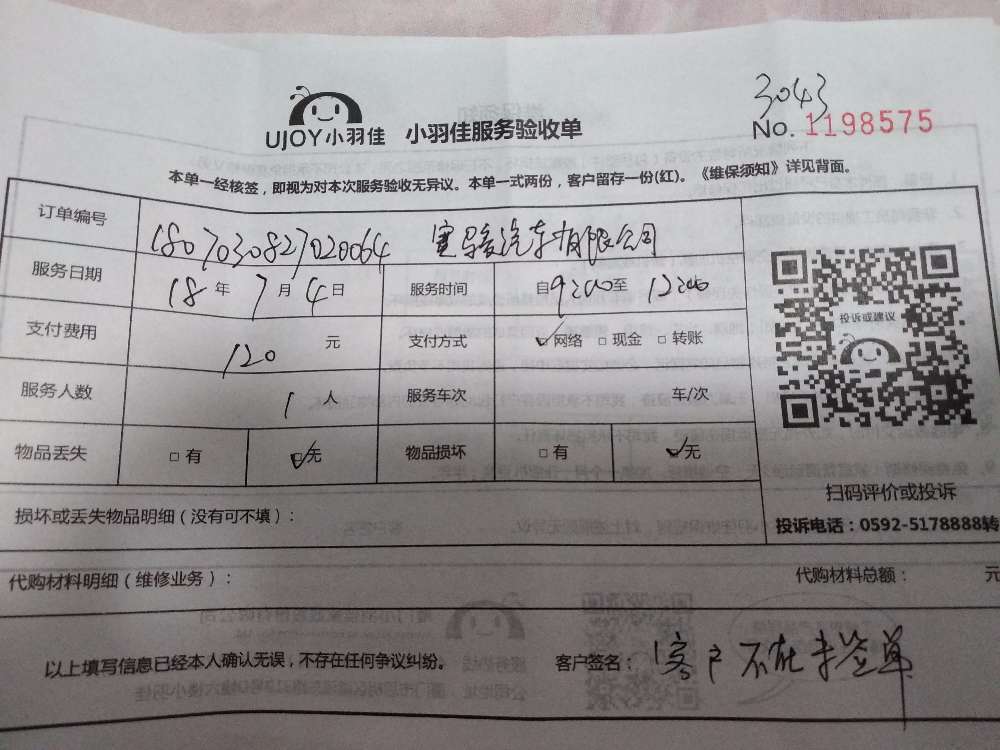 3043
UJOY小羽佳 小羽佳服务验收单 No. 1198575
本单一经核签，即视为对本次服务验收无异议。本单一式两份，客户留存一份(红)。《维保须知》详见背面。
订单编号 1807030827020064 宝骏汽车有限公司
服务日期 18年7月4日 服务时间 自9:00至12:00
支付费用 120元 支付方式 ☑网络 □现金 □转账
服务人数 1人 服务车次 车/次
物品丢失 □有 ☑无 物品损坏 □有 ☑无
投诉或建议
扫码评价或投诉
投诉电话：0592-5178888转
损坏或丢失物品明细（没有可不填）：
代购材料明细（维修业务）： 代购材料总额： 元
以上填写信息已经本人确认无误，不存在任何争议纠纷。 客户签名：客户不在未签单